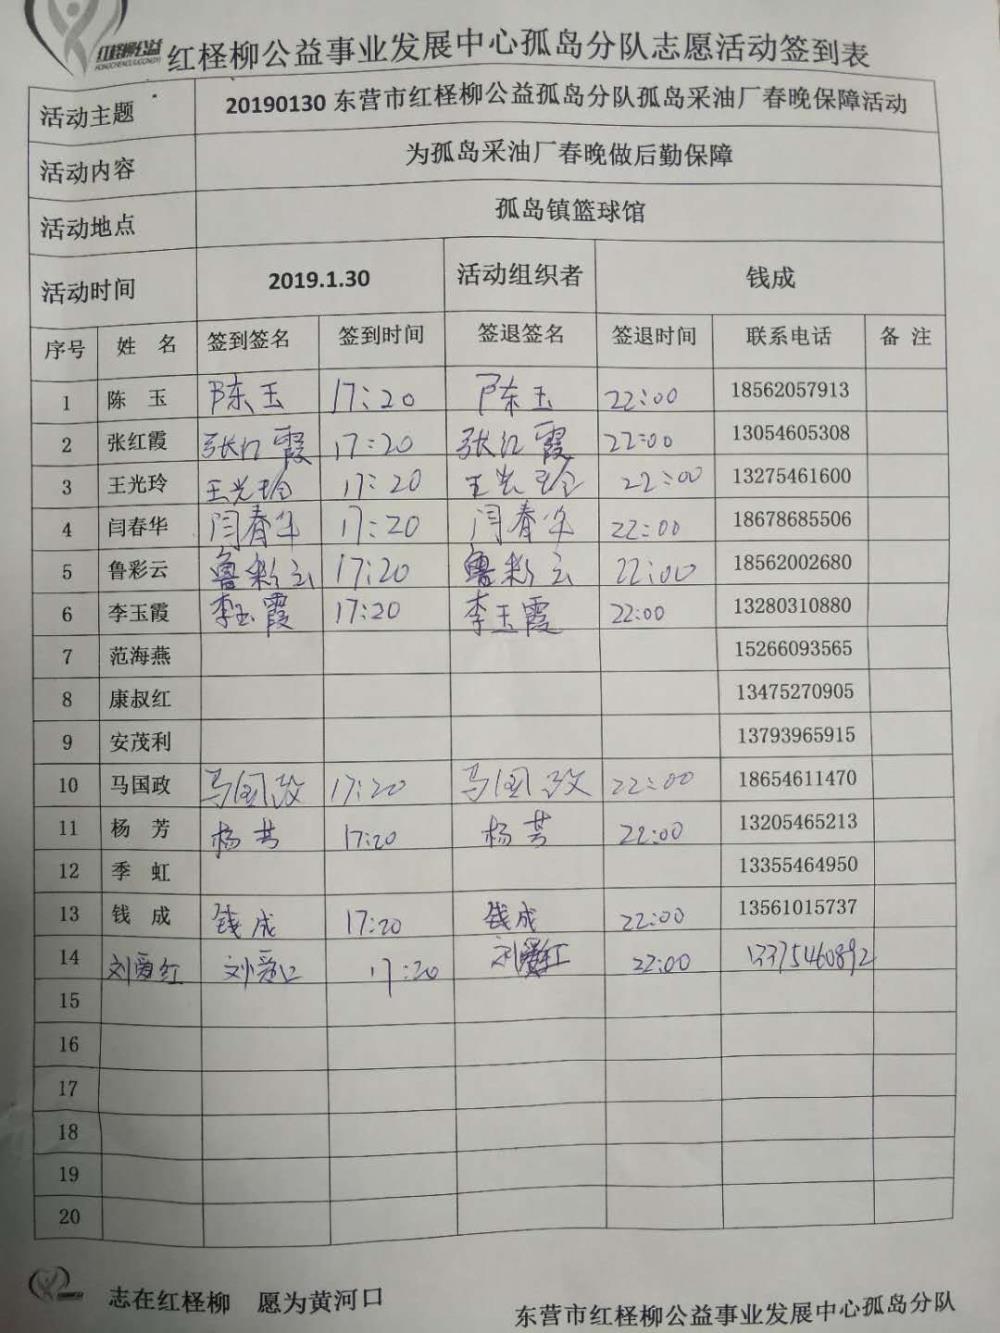 红柽柳公益
HONGCHENGLIUGONGYI
红柽柳公益事业发展中心孤岛分队志愿活动签到表
活动主题 20190130 东营市红柽柳公益孤岛分队孤岛采油厂春晚保障活动
活动内容 为孤岛采油厂春晚做后勤保障
活动地点 孤岛镇篮球馆
活动时间 2019.1.30 活动组织者 钱成
序号 姓 名 签到签名 签到时间 签退签名 签退时间 联系电话 备 注
1 陈 玉 陈玉 17:20 陈玉 22:00 18562057913
2 张红霞 张红霞 17:20 张红霞 22:00 13054605308
3 王光玲 王光玲 17:20 王光玲 22:00 13275461600
4 闫春华 闫春华 17:20 闫春华 22:00 18678685506
5 鲁彩云 鲁彩云 17:20 鲁彩云 22:00 18562002680
6 李玉霞 李玉霞 17:20 李玉霞 22:00 13280310880
7 范海燕 15266093565
8 康叔红 13475270905
9 安茂利 13793965915
10 马国政 马国政 17:20 马国政 22:00 18654611470
11 杨 芳 杨芳 17:20 杨芳 22:00 13205465213
12 季 虹 13355464950
13 钱 成 钱成 17:20 钱成 22:00 13561015737
14 刘爱红 刘爱红 17:20 刘爱红 22:00 13375460892
15
16
17
18
19
20
志在红柽柳 愿为黄河口
东营市红柽柳公益事业发展中心孤岛分队